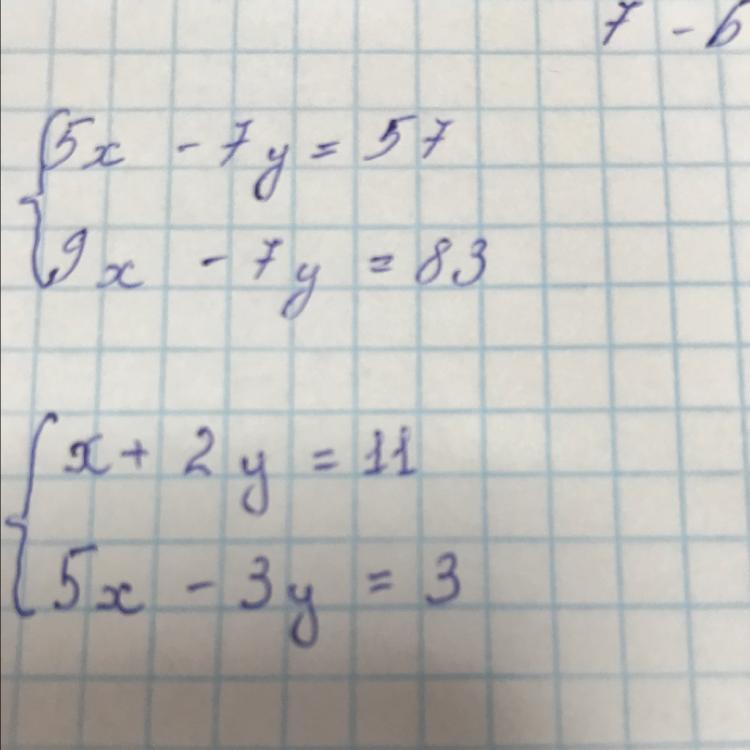 7 - 6
5x - 7y = 57
9x - 7y = 83
x + 2y = 11
5x - 3y = 3